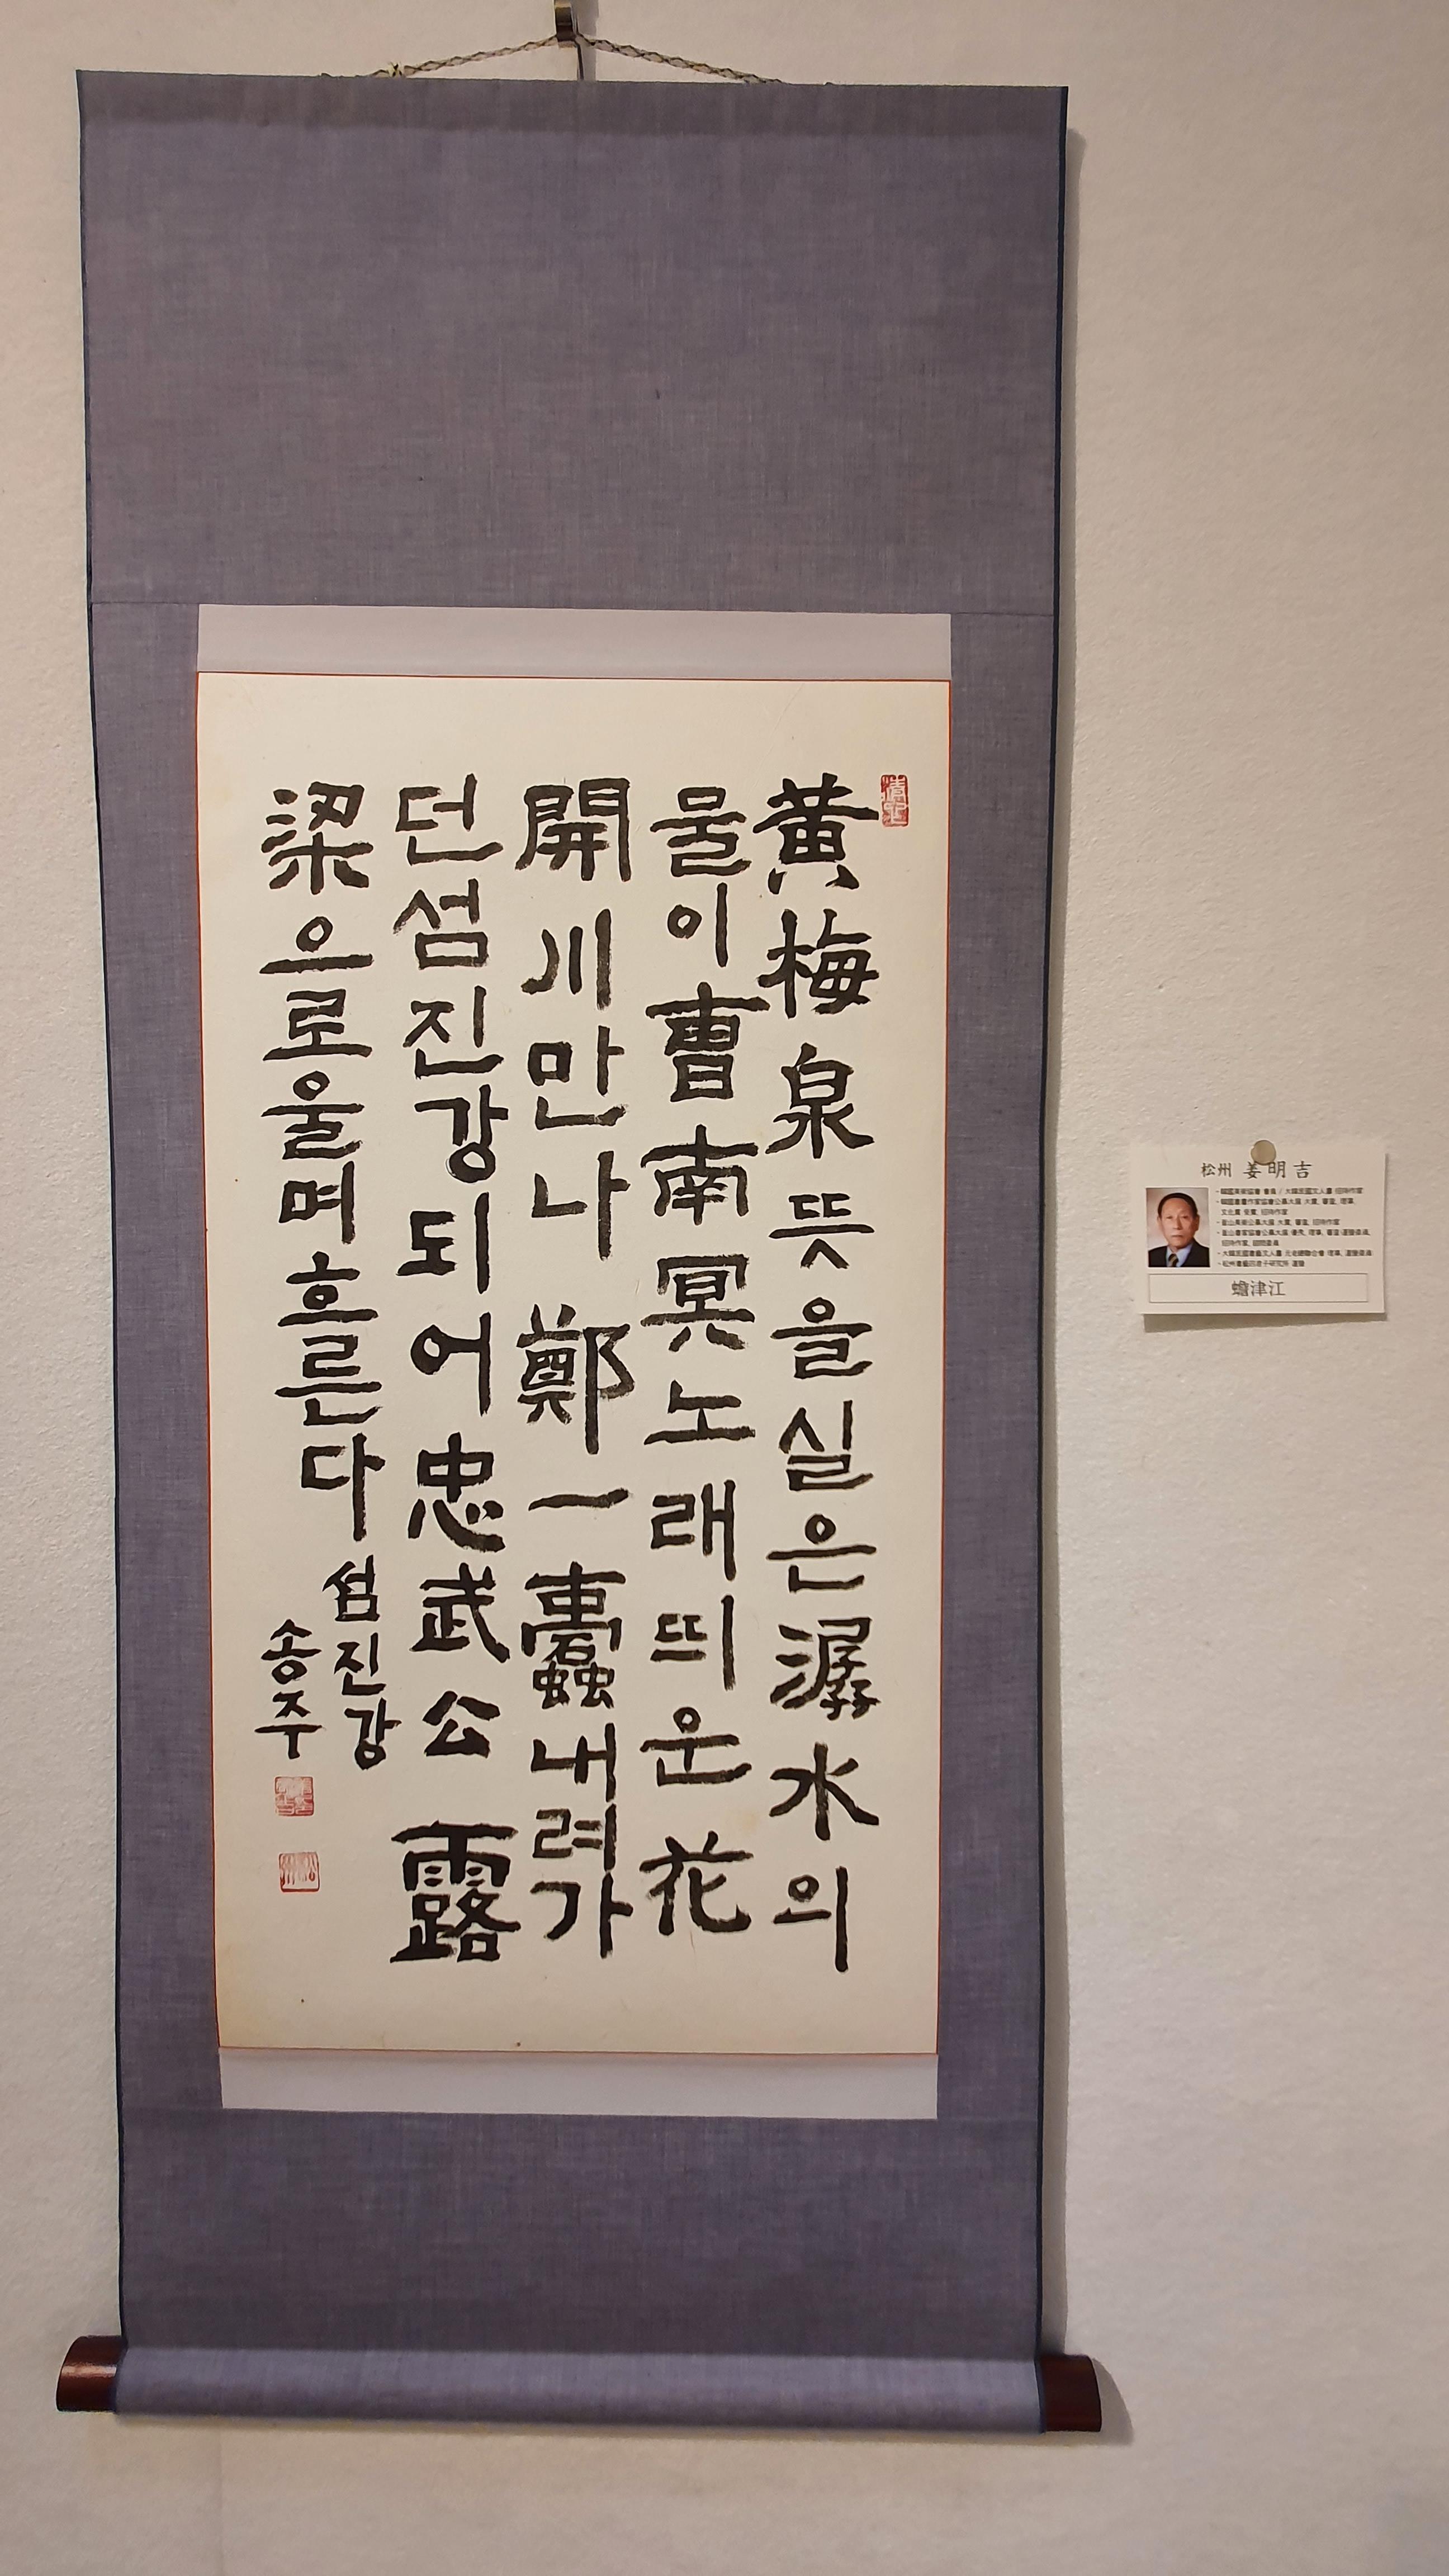 黄梅泉뜻을실은潺水의
물이曺南冥노래띄운花
開川만나 鄭一蠹내려가
던섬진강되어忠武公 露
梁으로울며흐른다
섬진강
송주
松州 姜明吉
蟾津江